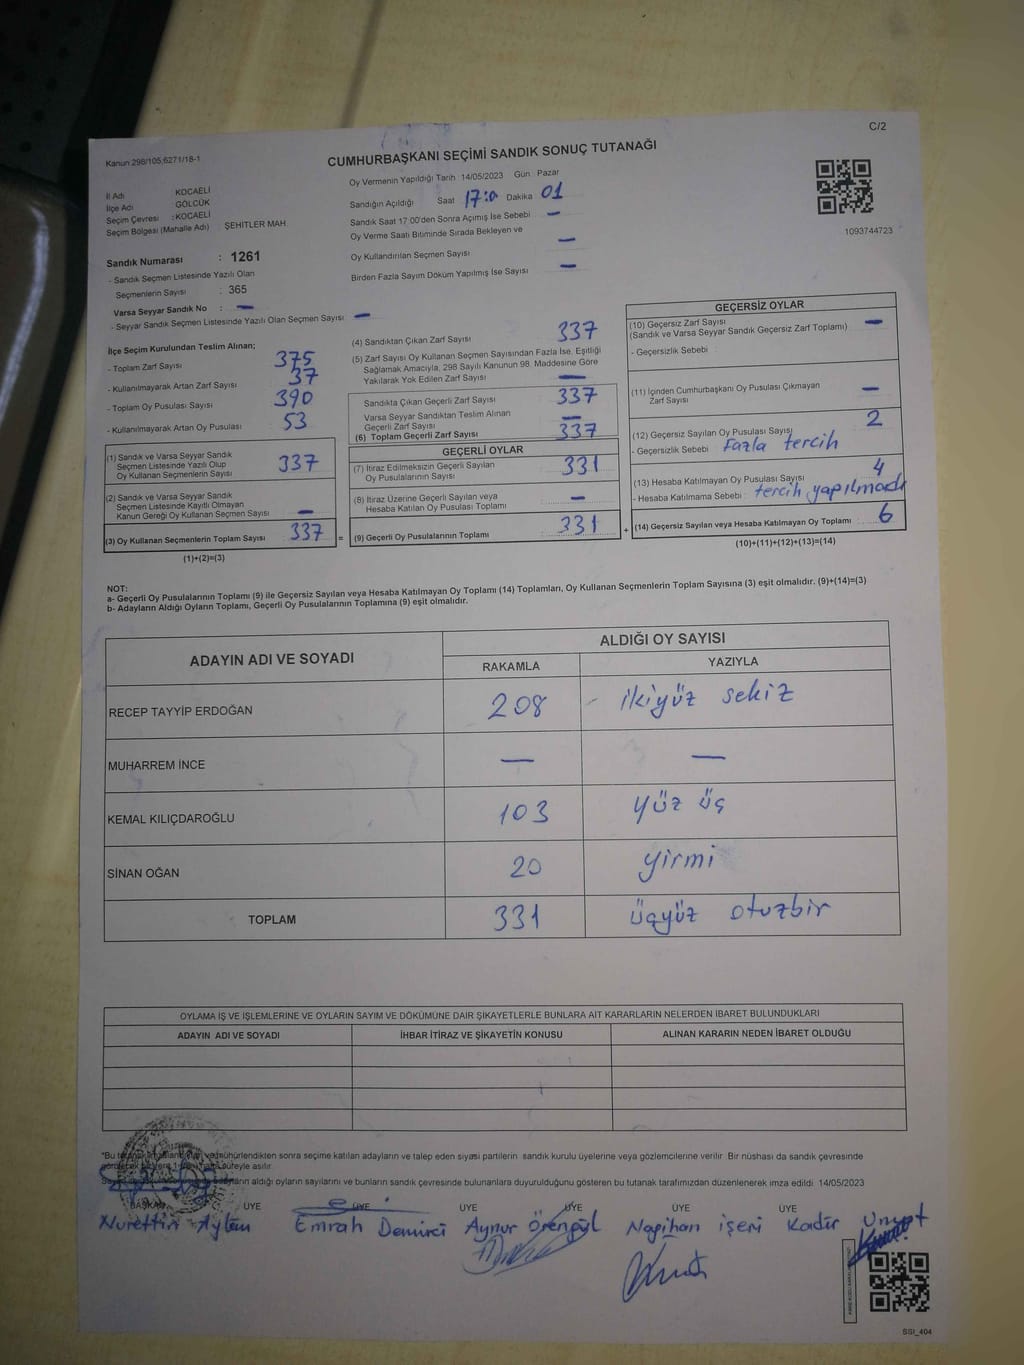 C/2
Kanun 298/105;6271/18-1
CUMHURBAŞKANI SEÇİMİ SANDIK SONUÇ TUTANAĞI
İl Adı : KOCAELİ
İlçe Adı : GÖLCÜK
Seçim Çevresi : KOCAELİ
Seçim Bölgesi (Mahalle Adı) : ŞEHİTLER MAH.
Sandık Numarası : 1261
- Sandık Seçmen Listesinde Yazılı Olan
Seçmenlerin Sayısı : 365
Varsa Seyyar Sandık No : —
- Seyyar Sandık Seçmen Listesinde Yazılı Olan Seçmen Sayısı : —
Oy Vermenin Yapıldığı Tarih 14/05/2023 Gün Pazar
Sandığın Açıldığı Saat 17:0 Dakika 01
Sandık Saat 17:00'den Sonra Açımış İse Sebebi —
Oy Verme Saati Bitiminde Sırada Bekleyen ve
Oy Kullandırılan Seçmen Sayısı —
Birden Fazla Sayım Döküm Yapılmış İse Sayısı —
1093744723
İlçe Seçim Kurulundan Teslim Alınan;
- Toplam Zarf Sayısı 375
- Kullanılmayarak Artan Zarf Sayısı 37
- Toplam Oy Pusulası Sayısı 390
- Kullanılmayarak Artan Oy Pusulası 53
(1) Sandık ve Varsa Seyyar Sandık
Seçmen Listesinde Yazılı Olup
Oy Kullanan Seçmenlerin Sayısı 337
(2) Sandık ve Varsa Seyyar Sandık
Seçmen Listesinde Kayıtlı Olmayan
Kanun Gereği Oy Kullanan Seçmen Sayısı —
(3) Oy Kullanan Seçmenlerin Toplam Sayısı 337 =
(1)+(2)=(3)
(4) Sandıktan Çıkan Zarf Sayısı 337
(5) Zarf Sayısı Oy Kullanan Seçmen Sayısından Fazla İse, Eşitliği
Sağlamak Amacıyla, 298 Sayılı Kanunun 98. Maddesine Göre
Yakılarak Yok Edilen Zarf Sayısı —
Sandıkta Çıkan Geçerli Zarf Sayısı 337
Varsa Seyyar Sandıktan Teslim Alınan
Geçerli Zarf Sayısı —
(6) Toplam Geçerli Zarf Sayısı 337
GEÇERLİ OYLAR
(7) İtiraz Edilmeksizin Geçerli Sayılan
Oy Pusulasının Sayısı 331
(8) İtiraz Üzerine Geçerli Sayılan veya
Hesaba Katılan Oy Pusulası Toplamı —
(9) Geçerli Oy Pusulalarının Toplamı 331 +
GEÇERSİZ OYLAR
(10) Geçersiz Zarf Sayısı —
(Sandık ve Varsa Seyyar Sandık Geçersiz Zarf Toplamı)
- Geçersizlik Sebebi
(11) İçinden Cumhurbaşkanı Oy Pusulası Çıkmayan —
Zarf Sayısı
(12) Geçersiz Sayılan Oy Pusulası Sayısı 2
- Geçersizlik Sebebi Fazla tercih
(13) Hesaba Katılmayan Oy Pusulası Sayısı 4
- Hesaba Katılmama Sebebi : tercih yapılmadı
(14) Geçersiz Sayılan veya Hesaba Katılmayan Oy Toplamı 6
(10)+(11)+(12)+(13)=(14)
NOT:
a- Geçerli Oy Pusulalarının Toplamı (9) ile Geçersiz Sayılan veya Hesaba Katılmayan Oy Toplamı (14) Toplamları, Oy Kullanan Seçmenlerin Toplam Sayısına (3) eşit olmalıdır. (9)+(14)=(3)
b- Adayların Aldığı Oyların Toplamı, Geçerli Oy Pusulalarının Toplamına (9) eşit olmalıdır.
ADAYIN ADI VE SOYADI ALDIĞI OY SAYISI
RAKAMLA YAZIYLA
RECEP TAYYİP ERDOĞAN 208 ikiyüz sekiz
MUHARREM İNCE — —
KEMAL KILIÇDAROĞLU 103 yüz üç
SİNAN OĞAN 20 yirmi
TOPLAM 331 üçyüz otuzbir
OYLAMA İŞ VE İŞLEMLERİNE VE OYLARIN SAYIM VE DÖKÜMÜNE DAİR ŞİKAYETLERLE BUNLARA AİT KARARLARIN NELERDEN İBARET BULUNDUKLARI
ADAYIN ADI VE SOYADI İHBAR İTİRAZ VE ŞİKAYETİN KONUSU ALINAN KARARIN NEDEN İBARET OLDUĞU
*Bu mühürlendikten sonra seçime katılan adayların ve talep eden siyasi partilerin sandık kurulu üyelerine veya gözlemcilerine verilir. Bir nüshası da sandık çevresinde
süreyle asılır.
aldığı oyların sayılarını ve bunların sandık çevresinde bulunanlara duyurulduğunu gösteren bu tutanak tarafımızdan düzenlenerek imza edildi. 14/05/2023
BAŞKAN ÜYE ÜYE ÜYE ÜYE ÜYE ÜYE
Nurettin Aylan Emrah Demirci Aynur Örengül Nagihan işeri Kadir Umut
SSI_404